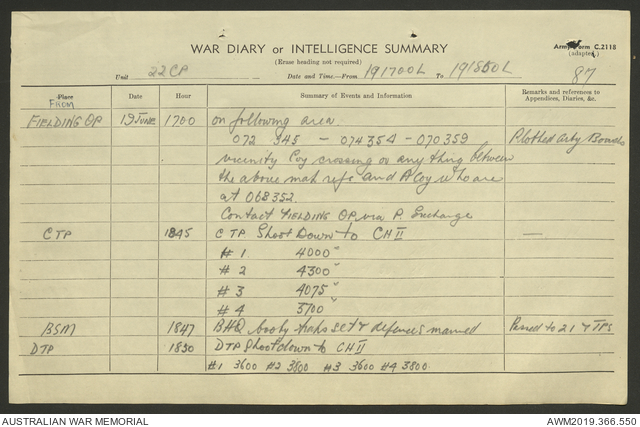 WAR DIARY or INTELLIGENCE SUMMARY
(Erase heading not required)
Army Form C.2118
(adapted)
Unit 22CP Date and Time.—From 191700L To 191850L
87
Place Date Hour Summary of Events and Information Remarks and references to Appendices, Diaries, &c.
FROM
FIELDING OP 19 JUNE 1700 on following area.
072 345 — 074354 — 070359 Plotted Arty Boards
vicinity Coy crossing or any thing between
the above map refs and A Coy who are
at 068352.
Contact FIELDING OP via P. Exchange
CTP 1845 CTP Shoot Down to CH II —
# 1. 4000"
# 2 4300"
# 3 4075"
# 4 3700"
BSM 1847 BHQ booby traps set & defences manned Passed to 21 & TPS
DTP 1850 DTP Shoot down to CH II
#1 3600 #2 3800 #3 3600 #4 3800.
AUSTRALIAN WAR MEMORIAL AWM2019.366.550